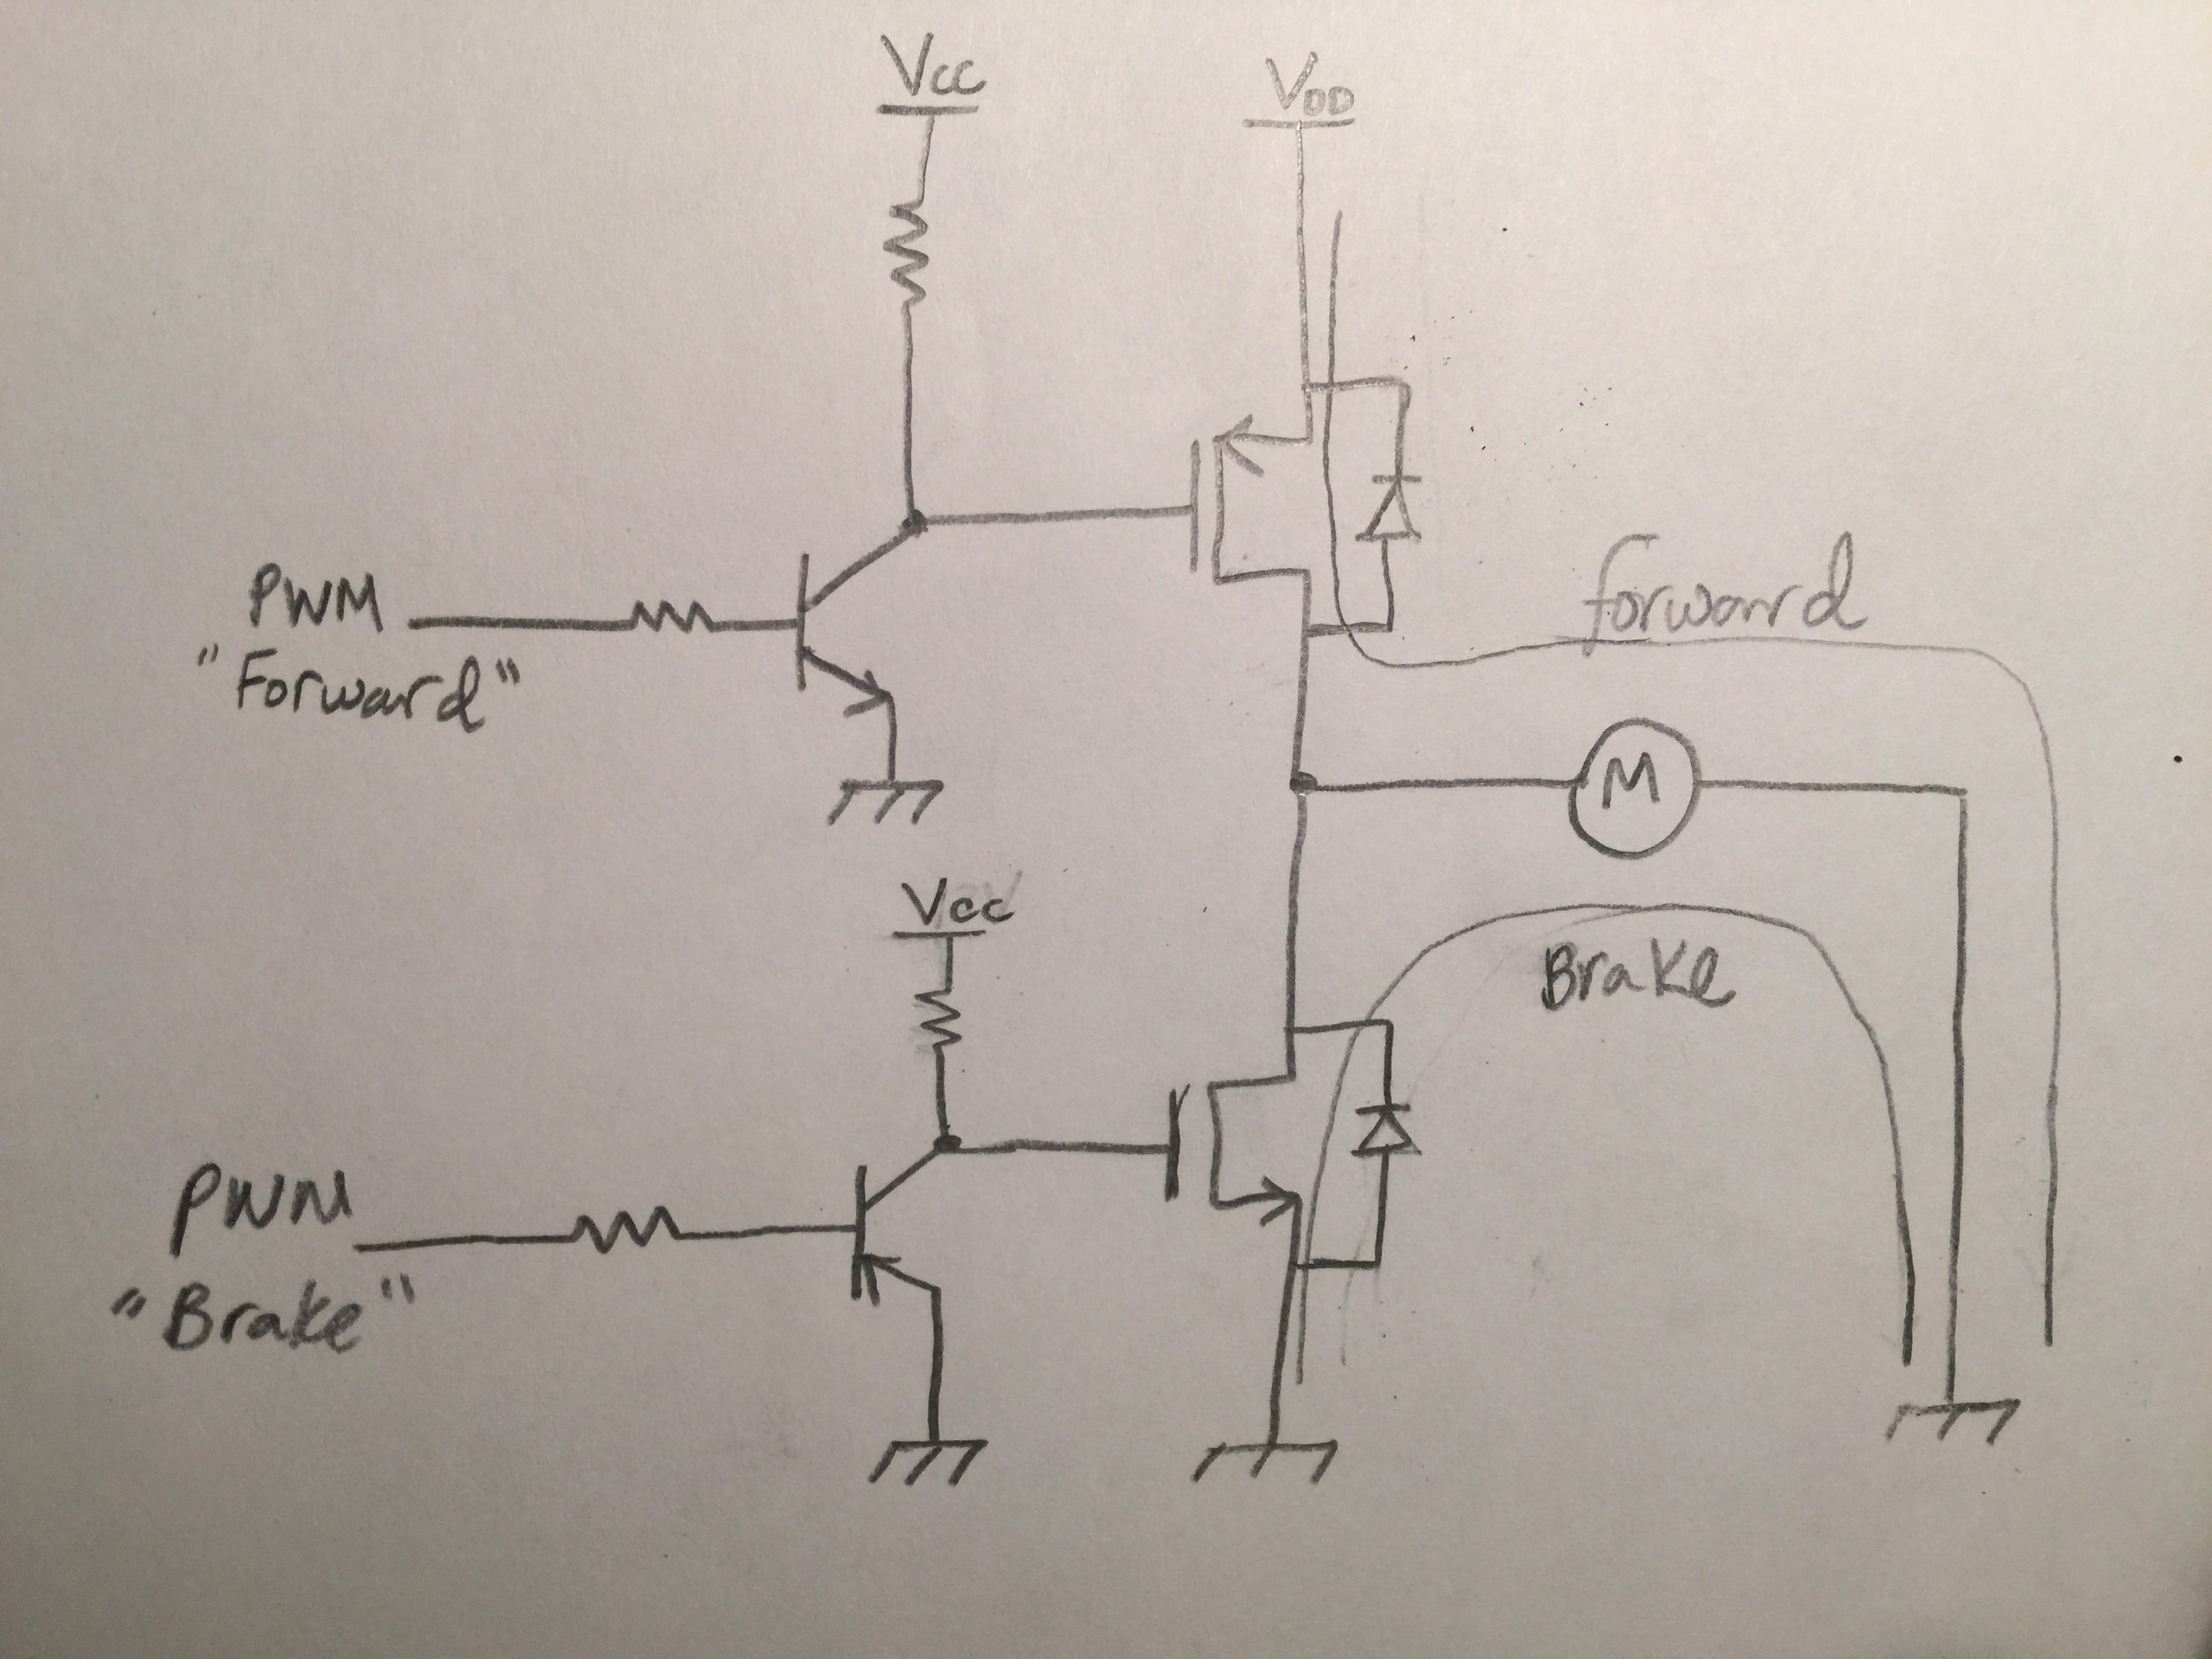 Vcc
VDD
PWM
"Forward"
forward
M
Vcc
Brake
PWM
"Brake"